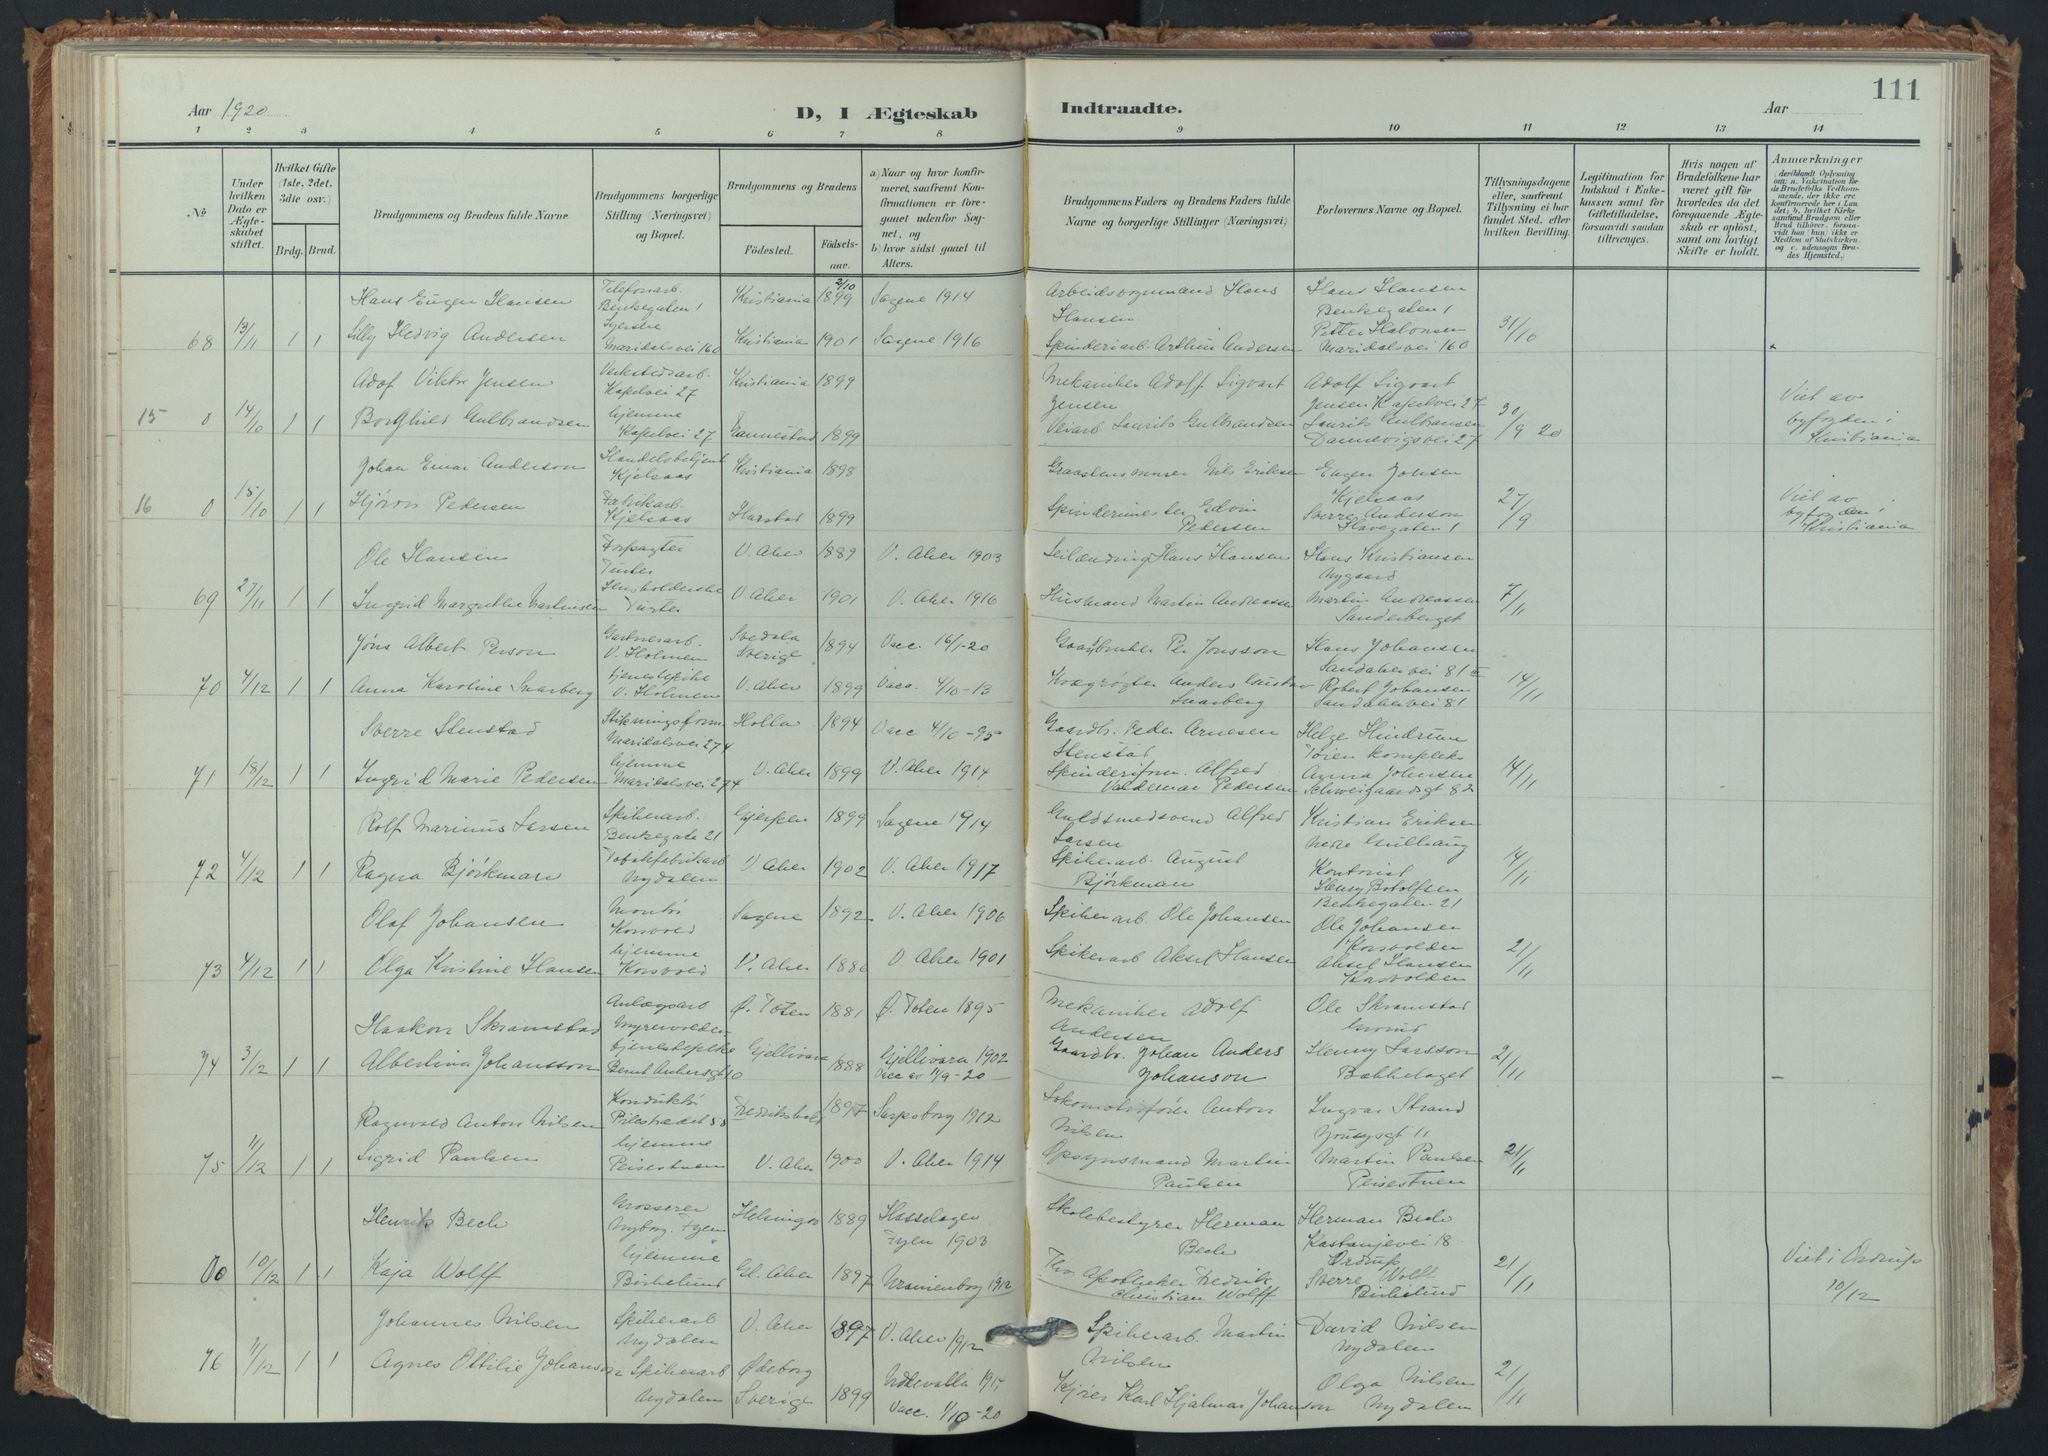 111
Aar 1920
D, I Ægteskab Indtraadte.
Aar
1 2 3 4 5 6 7 8 9 10 11 12 13 14
№
Under hvilken Dato er Ægteskabet stiftet.
Hvilket Gifte (1ste, 2det, 3die osv.)
Brdg. Brud.
Brudgommens og Brudens fulde Navne
Brudgommens borgerlige Stilling (Næringsvei) og Bopæl.
Brudgommens og Brudens
Fødested. Fødselsaar.
a) Naar og hvor konfirmeret, saafremt Konfirmationen er foregaaet udenfor Sognet, og
b) hvor sidst gaaet til Alters.
Brudgommens Faders og Brudens Faders fulde Navne og borgerlige Stillinger (Næringsvei)
Forlovernes Navne og Bopæl.
Tillysningsdagene eller, saafremt Tillysning ei har fundet Sted, efter hvilken Bevilling.
Legitimation for Indskud i Enkekassen samt for Giftetilladelse, forsaavidt saadan tiltrænges.
Hvis nogen af Brudefolkene har været gift før hvorledes da det foregaaende Ægteskab er opløst, samt om lovligt Skifte er holdt.
Anmærkninger
Hans Eugen Hansen Telefonarb. Benkegaten 1 Kristiania 2/10 1899 Sagene 1914 Arbeidsvognmand Hans Hansen Hans Hansen Benkegaten 1
68 13/11 1 1 Lilly Hedvig Andersen Maridalsvei 160 Kristiania 1901 Sagene 1916 Spinderiarb. Arthur Andersen Petter Halvorsen Maridalsvei 160 31/10
Adof Viktor Jensen Verkstedsarb. Kapelvei 27 Kristiania 1899 Mekaniker Adolf Sigvart Jensen Adolf Sigvart Jensen Kapelvei 27
15 0 14/10 1 1 Borghild Gulbrandsen hjemme Kapelvei 27 1899 Veiarb. Laurits Gulbrandsen Laurits Gulbransen Dannevigsvei 27 30/9 20 Viet av byfogden i Kristiania
Johan Einar Anderson Handelsbetjent Kjelsaas Kristiania 1898 Nils Eriksen Eugen Jonsen Kjelsaas
16 0 15/10 1 1 Hjørdis Pedersen Fabrikarb. Kjelsaas Harstad 1899 Spindermester Edvin Pedersen Sverre Anderson 27/9 Viet av byfogden i Kristiania
Ole Hansen Forpagter V. Aker 1889 V. Aker 1903 Hans Hansen Hans Kristiansen Nygaard
69 27/11 1 1 Ingrid Margrethe Martinsen V. Aker 1901 V. Aker 1916 Husmand Martin Andreassen Martin Andreassen Sanderberget 7/11
Jøns Albert Person Gartnerarb. V. Holmen Svedala Sverige 1894 Vacc. 16/1-20 Gaardbruker Per Jonsson Hans Johansen Sandakervei 81 III
70 4/12 1 1 Anna Karoline Svarberg tjenestepike V. Holmen V. Aker 1899 Vacc. 4/10-13 Kvægrøgter Anders Gustav Svarberg Robert Johansen Sandakervei 81 14/11
Sverre Stenstad Maridalsvei 274 Holla 1894 Vacc 4/10-95 Gaardbr. Peder Arnesen Stenstad Helge Hindrum Tøien kompleks
71 18/12 1 1 Ingrid Marie Pedersen hjemme Maridalsvei 274 V. Aker 1899 V. Aker 1914 Spinderiform. Alfred Valdemar Pedersen Anna Johnsen Schweigaardsgt 82 14/11
Rolf Marinus Larsen Spikerarb. Benkegate 21 Gjerpen 1899 Sagene 1914 Guldsmedsvend Alfred Larsen Kristian Eriksen
72 4/12 1 1 Ragna Bjørkman Tobakfabrikarb Nydalen V. Aker 1902 V. Aker 1917 Spikerarb. August Bjørkman Kontorist Henry Botolfsen Benkegaten 21 14/11
Olaf Johansen Montør Korsvold Sagene 1892 V. Aker 1906 Spikerarb. Ole Johansen Ole Johansen Korsvolden
73 4/12 1 1 Olga Kristine Hansen hjemme Korsvold V. Aker 1886 V. Aker 1901 Spikerarb Aksel Hansen Aksel Hansen Korsvolden 21/11
Haakon Skramstad Anlægsarb Myrervolden Ø. Toten 1881 Ø. Toten 1895 Mekaniker Adolf Andersen Ole Skramstad Grorud
74 3/12 1 1 Albertina Johansson tjenestepike Bernt Ankersgt 10 Gjellivara 1888 Gjellivara 1902 Vacc av 11/9-20 Gaardbr. Johan Anders Johanson Henny Larsson Bækkelaget 21/11
Ragnvald Anton Nilsen Konduktør Pilestredet 58 Fredrikshald 1897 Sarpsborg 1912 Lokomotivfører Anton Nilsen Ingvar Strand
75 11/12 1 1 Sigrid Paulsen hjemme Peisestuen V. Aker 1900 V. Aker 1914 Opsynsmand Martin Paulsen Martin Paulsen Peisestuen 21/11
Henrik Bech Grosserer Nyborg Fyen Helsingør 1889 Fyen 1903 Skolebestyrer Herman Bech Herman Bech Kastanjevei 18 Ordrup
0 10/12 1 1 Kaja Wolff hjemme Birkelund Gl. Aker 1897 Uranienborg 1912 Apotheker Fredrik Christian Wolff Sverre Wolff Birkelund 21/11 Viet i Ordrup 10/12
Johannes Nilsen Spikerarb Nydalen V. Aker 1897 V. Aker 1912 Spikerarb. Martin Nilsen David Nilsen Nydalen
76 11/12 1 1 Agnes Ottilie Johanson Spikerarb Nydalen Ødeborg Sverige 1899 Uddevalla Vacc. 1/10-20 Kjører Karl Hjalmar Johanson Olga Nilsen Nydalen 21/11